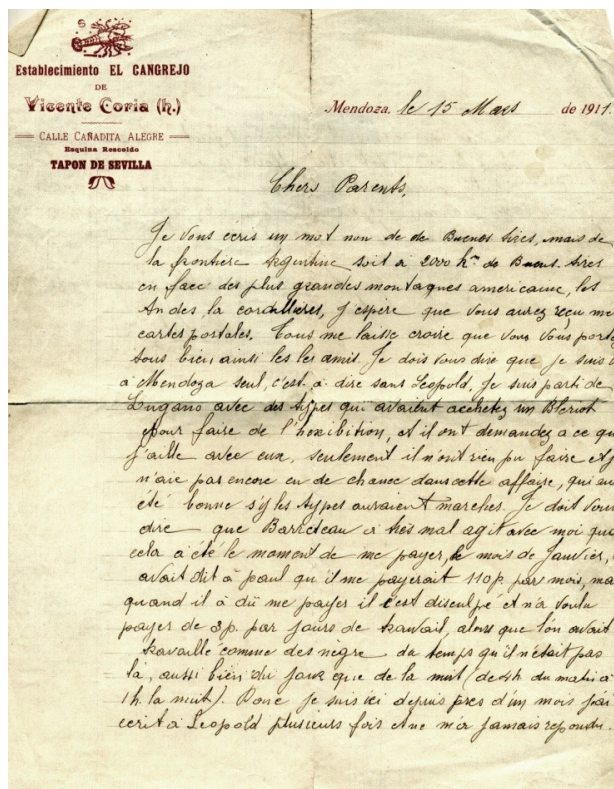 Establecimiento EL CANGREJO
DE
Vicente Coria (h.)
CALLE CAÑADITA ALEGRE
Esquina Rescoldo
TAPON DE SEVILLA
Mendoza, le 15 Mars de 1911.
Chers Parents,
Je vous ecris un mot non de de Buenos Aires, mais de
la frontière Argentine soit à 2000 km de Buens-Aires
en face des plus grandes montagnes americaine, les
Andes la cordillières, j'espère que vous aurez reçu me
cartes portales. Tous me laisse croire que vous vous porte
tous bien ainsi les les amis. Je dois vous dire que je suis
à Mendoza seul, c'est à dire sans Leopold, je suis parti de
Lugano avec des types qui avaient acchetez un Bleriot
pour faire de l'hoxibition, et il ont demandez a ce qu
j'aille avec eux, seulement il n'ont rien pu faire et j
n'aie pas encore eu de chance dans cette affaire, qui au
été bonne s'y les types auraient marches. Je doit vous
dire que Barreteau à très mal agit avec moi qua
cela à été le moment de me payer, le mois de Janvier,
avait dit à paul qu'il me payerait 110p. par mois, ma
quand il à dü me payer il c'est disculpé et n'a voulu
payer de 3p. par jours de travail, alors que l'on avait
travaille comme des nègre du temps qu'il n'était pas
là, aussi bien du jour que de la nuit (de 4h du matin à
1h. la nuit). Donc je suis ici depuis pres d'un mois j'ai
ecrit a Leopold plusieurs fois et ne m'a jamais repondu.